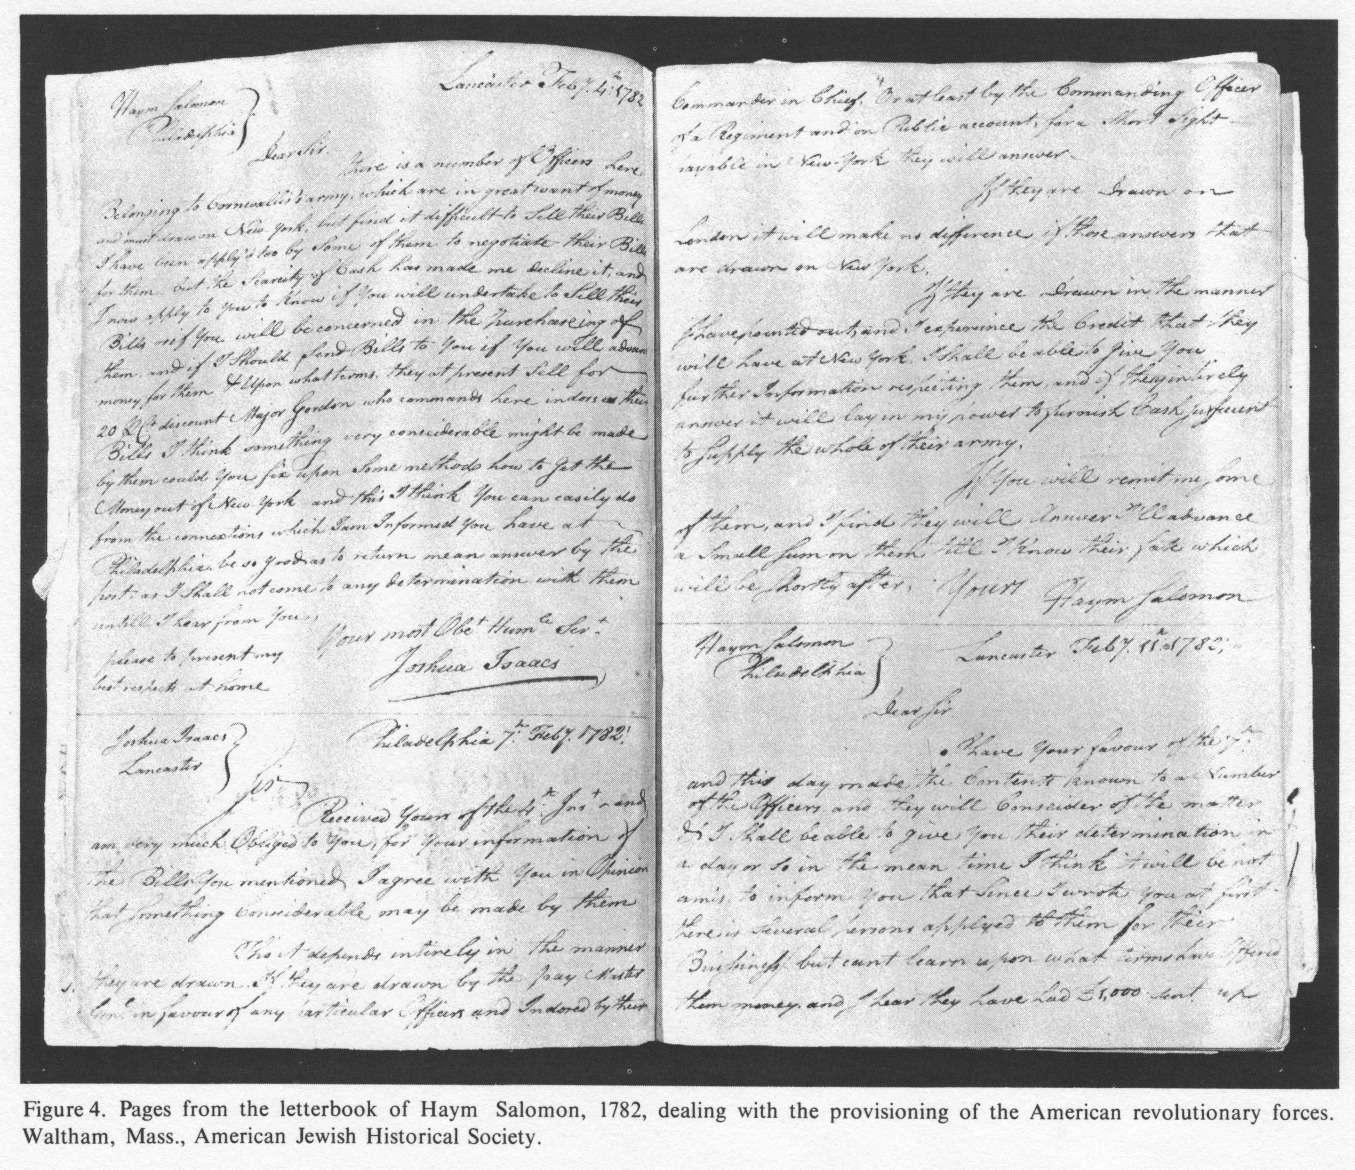 Lancaster Feby. 4th 1782
Haym Salomon
Philidelphia
Dear Sir
there is a number of Officers here
Belonging to Cornwallis's army, which are in great want of money
and must draw on New York, but find it difficult to Sell their Bills
I have been apply'd too by Some of them to negotiate their Bills
for them. but the Scarcity of Cash has made me decline it, and
I now apply to You to know if You will undertake to Sell their
Bills or if You will be concerned in the Purchaseing of
them. and if I Should Send Bills to You if You will advance
money for them & Upon what terms. they at present Sell for
20 P Ct discount Major Gordon who commands here indorses their
Bills I think something very considerable might be made
by them could You fix upon Some methods how to Get the
Money out of New York and this I think You can easily do
from the connextions which I am Informed You have at
Philadelphia be so good as to return me an answer by the
post. as I Shall not come to any determination with them
untill I hear from You,
please to present my
best respects at home
Your most Obet Humle Sert.
Joshua Isaacs
Joshua Isaacs
Lancaster
Philadelphia 7th. Feby. 1782.
Sir
Received Yours of the 4th. Inst. and
am very much Obliged to You, for Your information of
the Bills You mentioned, I agree with You in Opinion
that Something Considerable may be made by them
tho it depends intirely in the manner
they are drawn. If they are drawn by the Pay Master
Genl. in favour of any Particular Officers and Indorsed by their
Commander in Chief." Or at least by the Commanding Officer
of a Regiment and on Public account, for a Short Sight
payable in New-York they will answer.
If they are Drawn on
London it will make no difference if those answers that
are drawn on New York.
If they are Drawn in the manner
I have pointed out, and I experince the Credit that they
will have at New York. I Shall be able to Give You
further Information respecting them, and if they intirely
answer it will lay in my power to furnish Cash sufficient
to Supply the whole of their army.
If You will remit me some
of them, and I find they will Answer I'll advance
a Small Sum on them till I know their fate which
will be Shortly after. Yours Haym Salomon
Haym Salomon
Philadelphia
Lancaster Feby. 11th 1782.
Dear Sir
I have Your favour of the 7th.
and this day made the Contents known to a Number
of the Officers and they will Consider of the matter
& I Shall be able to give You their determination in
a day or so in the mean time I think it will be not
amis, to inform You that Since I wrote You at first
there is Several Persons applyed to them for their
Buisiness, but cant learn upon what terms have Offered
them money. and I hear they have had £1,000 Sent up
Figure 4. Pages from the letterbook of Haym Salomon, 1782, dealing with the provisioning of the American revolutionary forces.
Waltham, Mass., American Jewish Historical Society.